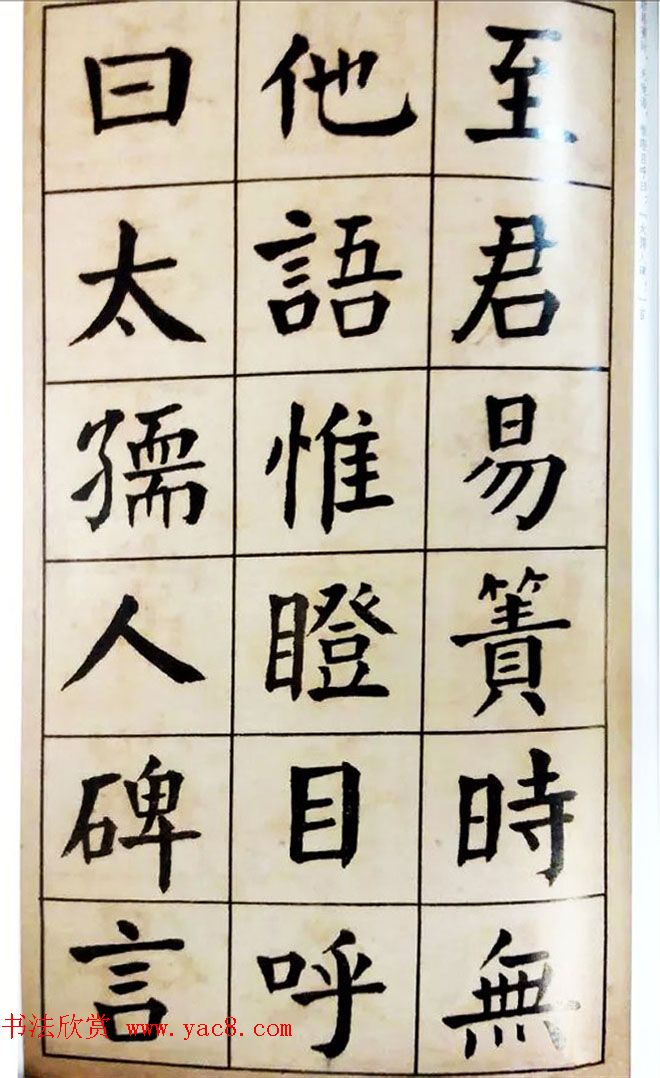 至君易簀時無
他語惟瞪目呼
曰太孺人碑言
书法欣赏 www.yac8.com